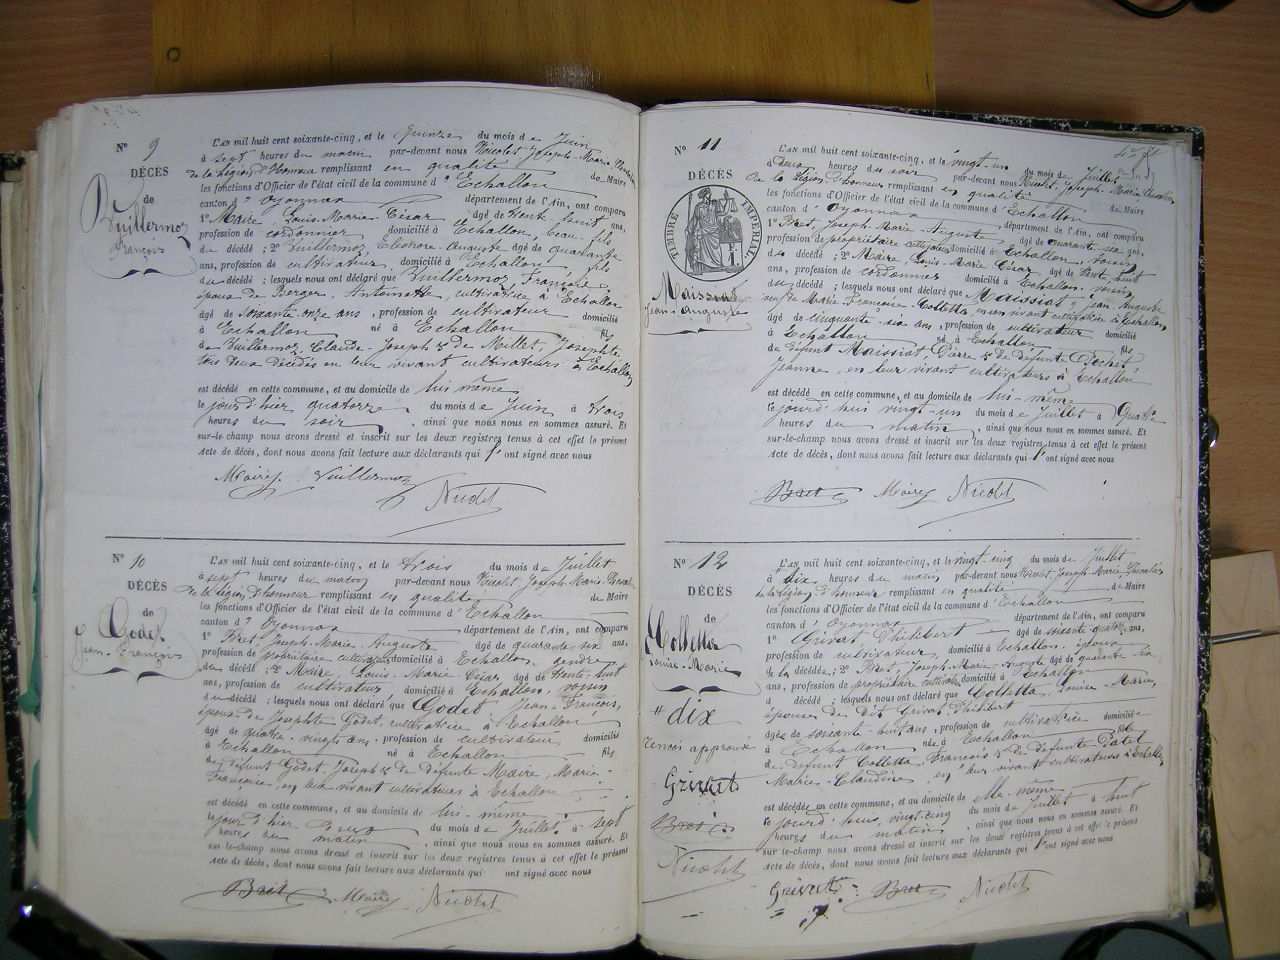 N° 9
DÉCÈS
de
Vuillermoz
François
L'an mil huit cent soixante-cinq, et le quinze du mois de Juin
à sept heures du matin par-devant nous Nicolet Joseph-Marie Chevalier
de la Légion d'Honneur remplissant en qualité de Maire
les fonctions d'Officier de l'état civil de la commune d' Echallon
canton d' Oyonnax département de l'Ain, ont comparu
1° Maire, Louis-Marie César âgé de trente-huit ans,
profession de cordonnier domicilié à Echallon, beau-fils
du décédé ; 2° Vuillermoz Eléonore-Auguste âgé de quarante
ans, profession de cultivateur domicilié à Echallon fils
du décédé ; lesquels nous ont déclaré que Vuillermoz François,
époux de Berger, Antoinette, cultivatrice à Echallon
âgé de soixante-onze ans, profession de cultivateur domicilié
à Echallon né à Echallon fils
de Vuillermoz Claude-Joseph & de Millet, Josephte
tous deux décédés en leur vivant cultivateurs à Echallon
est décédé en cette commune, et au domicile de lui même
le jour d'hier quatorze du mois de Juin à trois
heures du soir, ainsi que nous nous en sommes assuré. Et
sur-le-champ nous avons dressé et inscrit sur les deux registres tenus à cet effet le présent
acte de décès, dont nous avons fait lecture aux déclarants qui l'ont signé avec nous
Maire Vuillermoz
Nicolet
N° 10
DÉCÈS
de
Godet
Jean-François
L'an mil huit cent soixante-cinq, et le trois du mois de Juillet
à sept heures du matin par-devant nous Nicolet Joseph-Marie Chevalier
de la Légion d'honneur remplissant en qualité de Maire
les fonctions d'Officier de l'état civil de la commune d' Echallon
canton d' Oyonnax département de l'Ain, ont comparu
1° Bret, Joseph-Marie-Auguste âgé de quarante-six ans,
profession de propriétaire cultivateur domicilié à Echallon, gendre
du décédé ; 2° Maire, Louis-Marie César âgé de trente-huit
ans, profession de cultivateur domicilié à Echallon, voisin
du décédé ; lesquels nous ont déclaré que Godet Jean-François,
époux de Josephte Godet, cultivatrice à Echallon
âgé de quatre-vingts ans, profession de cultivateur domicilié
à Echallon né à Echallon fils
de défunt Godet Joseph & de défunte Maire, Marie-
Françoise, en leur vivant cultivateurs à Echallon
est décédé en cette commune, et au domicile de lui-même
le jour d'hier deux du mois de Juillet à sept
heures du matin, ainsi que nous nous en sommes assuré. Et
sur-le-champ nous avons dressé et inscrit sur les deux registres tenus à cet effet le présent
acte de décès, dont nous avons fait lecture aux déclarants qui ont signé avec nous
Bret Maire Nicolet
N° 11
DÉCÈS
TIMBRE IMPÉRIAL
Maissiat
Jean-Auguste
L'an mil huit cent soixante-cinq, et le vingt-un du mois de Juillet
à deux heures du soir par-devant nous Nicolet, Joseph-Marie Chevalier
de la Légion d'honneur remplissant en qualité de Maire
les fonctions d'Officier de l'état civil de la commune d' Echallon
canton d' Oyonnax département de l'Ain, ont comparu
1° Bret, Joseph Marie-Auguste âgé de quarante-six ans,
profession de propriétaire cultivateur domicilié à Echallon, voisin
du décédé ; 2° Maire, Louis-Marie César âgé de trente-huit
ans, profession de cordonnier domicilié à Echallon, voisin
du décédé ; lesquels nous ont déclaré que Maissiat Jean-Auguste
veuf de Marie Françoise Colletta en son vivant cultivatrice à Echallon
âgé de cinquante-six ans, profession de cultivateur domicilié
à Echallon né à Echallon fils
de défunt Maissiat Pierre & de défunte Pochet
Jeanne, en leur vivant cultivateurs à Echallon
est décédé en cette commune, et au domicile de lui-même
le jourd'hui vingt-un du mois de Juillet à quatre
heures du matin, ainsi que nous nous en sommes assuré. Et
sur-le-champ nous avons dressé et inscrit sur les deux registres tenus à cet effet le présent
acte de décès, dont nous avons fait lecture aux déclarants qui l'ont signé avec nous
Bret Maire Nicolet
N° 12
DÉCÈS
de
Colletta
Louise-Marie
# dix
renvoi approuvé
Grivat
Bret
Nicolet
L'an mil huit cent soixante-cinq, et le vingt-cinq du mois de Juillet
à dix heures du matin par-devant nous Nicolet, Joseph-Marie Chevalier
de la Légion d'honneur remplissant en qualité de Maire
les fonctions d'Officier de l'état civil de la commune d' Echallon
canton d' Oyonnax département de l'Ain, ont comparu
1° Grivat Philibert âgé de soixante quatorze ans,
profession de cultivateur domicilié à Echallon, époux
de la décédée ; 2° Bret, Joseph-Marie-Auguste âgé de quarante-six
ans, profession de propriétaire cultivateur domicilié à Echallon
décédé ; lesquels nous ont déclaré que Colletta, Louise-Marie,
épouse de dit Grivat Philibert
âgée de soixante-huit ans, profession de cultivatrice domiciliée
à Echallon née à Echallon fille
de défunt Colletta, François & de défunte Patet
Marie-Claudine, en leur vivant cultivateurs à Echallon
est décédée en cette commune, et au domicile de elle-même
le jourd'hui vingt-cinq du mois de Juillet à huit
heures du matin, ainsi que nous nous en sommes assuré. Et
sur-le-champ nous avons dressé et inscrit sur les deux registres tenus à cet effet le présent
acte de décès, dont nous avons fait lecture aux déclarants qui l'ont signé avec nous
Grivat Bret Nicolet